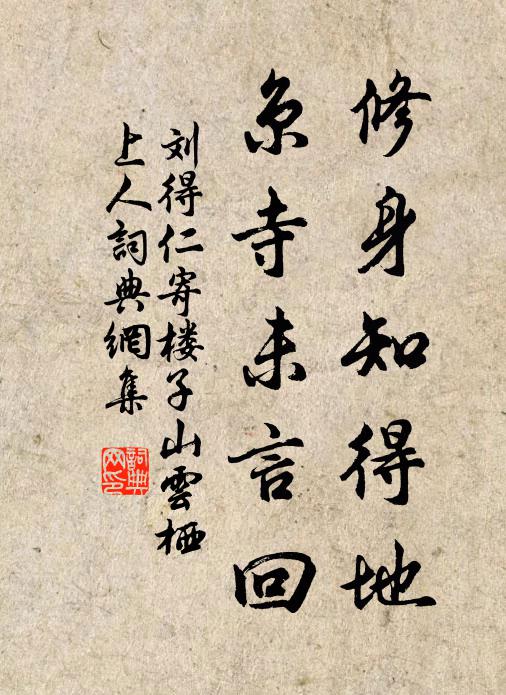 修身知得地
京寺未言回
刘得仁寄楼子山雲栖
上人詞典網集
詞典
网印